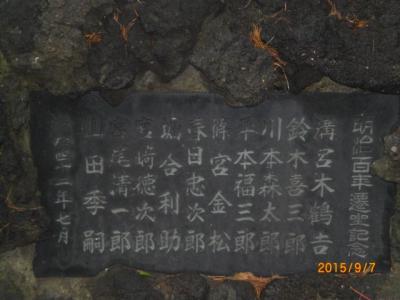 明治百年還暦記念
溝呂木鶴吉
鈴木喜三郎
川本森太郎
平本福三郎
 宮金松
春日忠次郎
 合利助
宮崎徳次郎
 尾清一郎
山田季嗣
 七月
2015/9/7